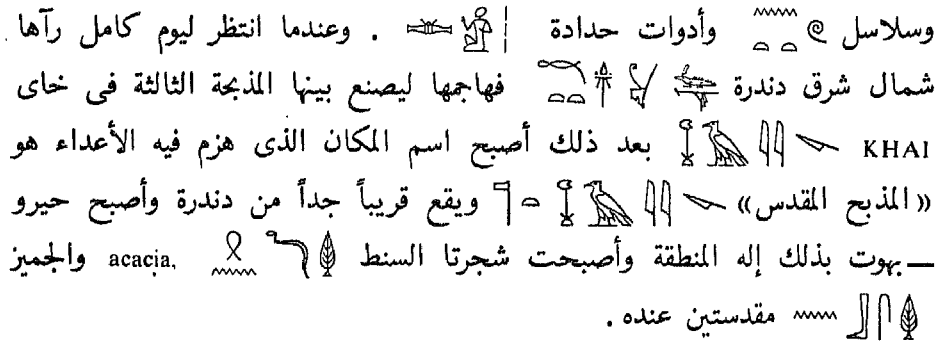 وسلاسل 𓈖𓏏𓏏𓍢 وأدوات حدادة . وعندما انتظر ليوم كامل رآها
شمال شرق دندرة فهاجمها ليصنع بينها المذبحة الثالثة فى خاى
KHAI بعد ذلك أصبح اسم المكان الذى هزم فيه الأعداء هو
«المذبح المقدس» ويقع قريباً جداً من دندرة وأصبح حيرو
ــ بهوت بذلك إله المنطقة وأصبحت شجرتا السنط acacia, والجميز
مقدستين عنده .